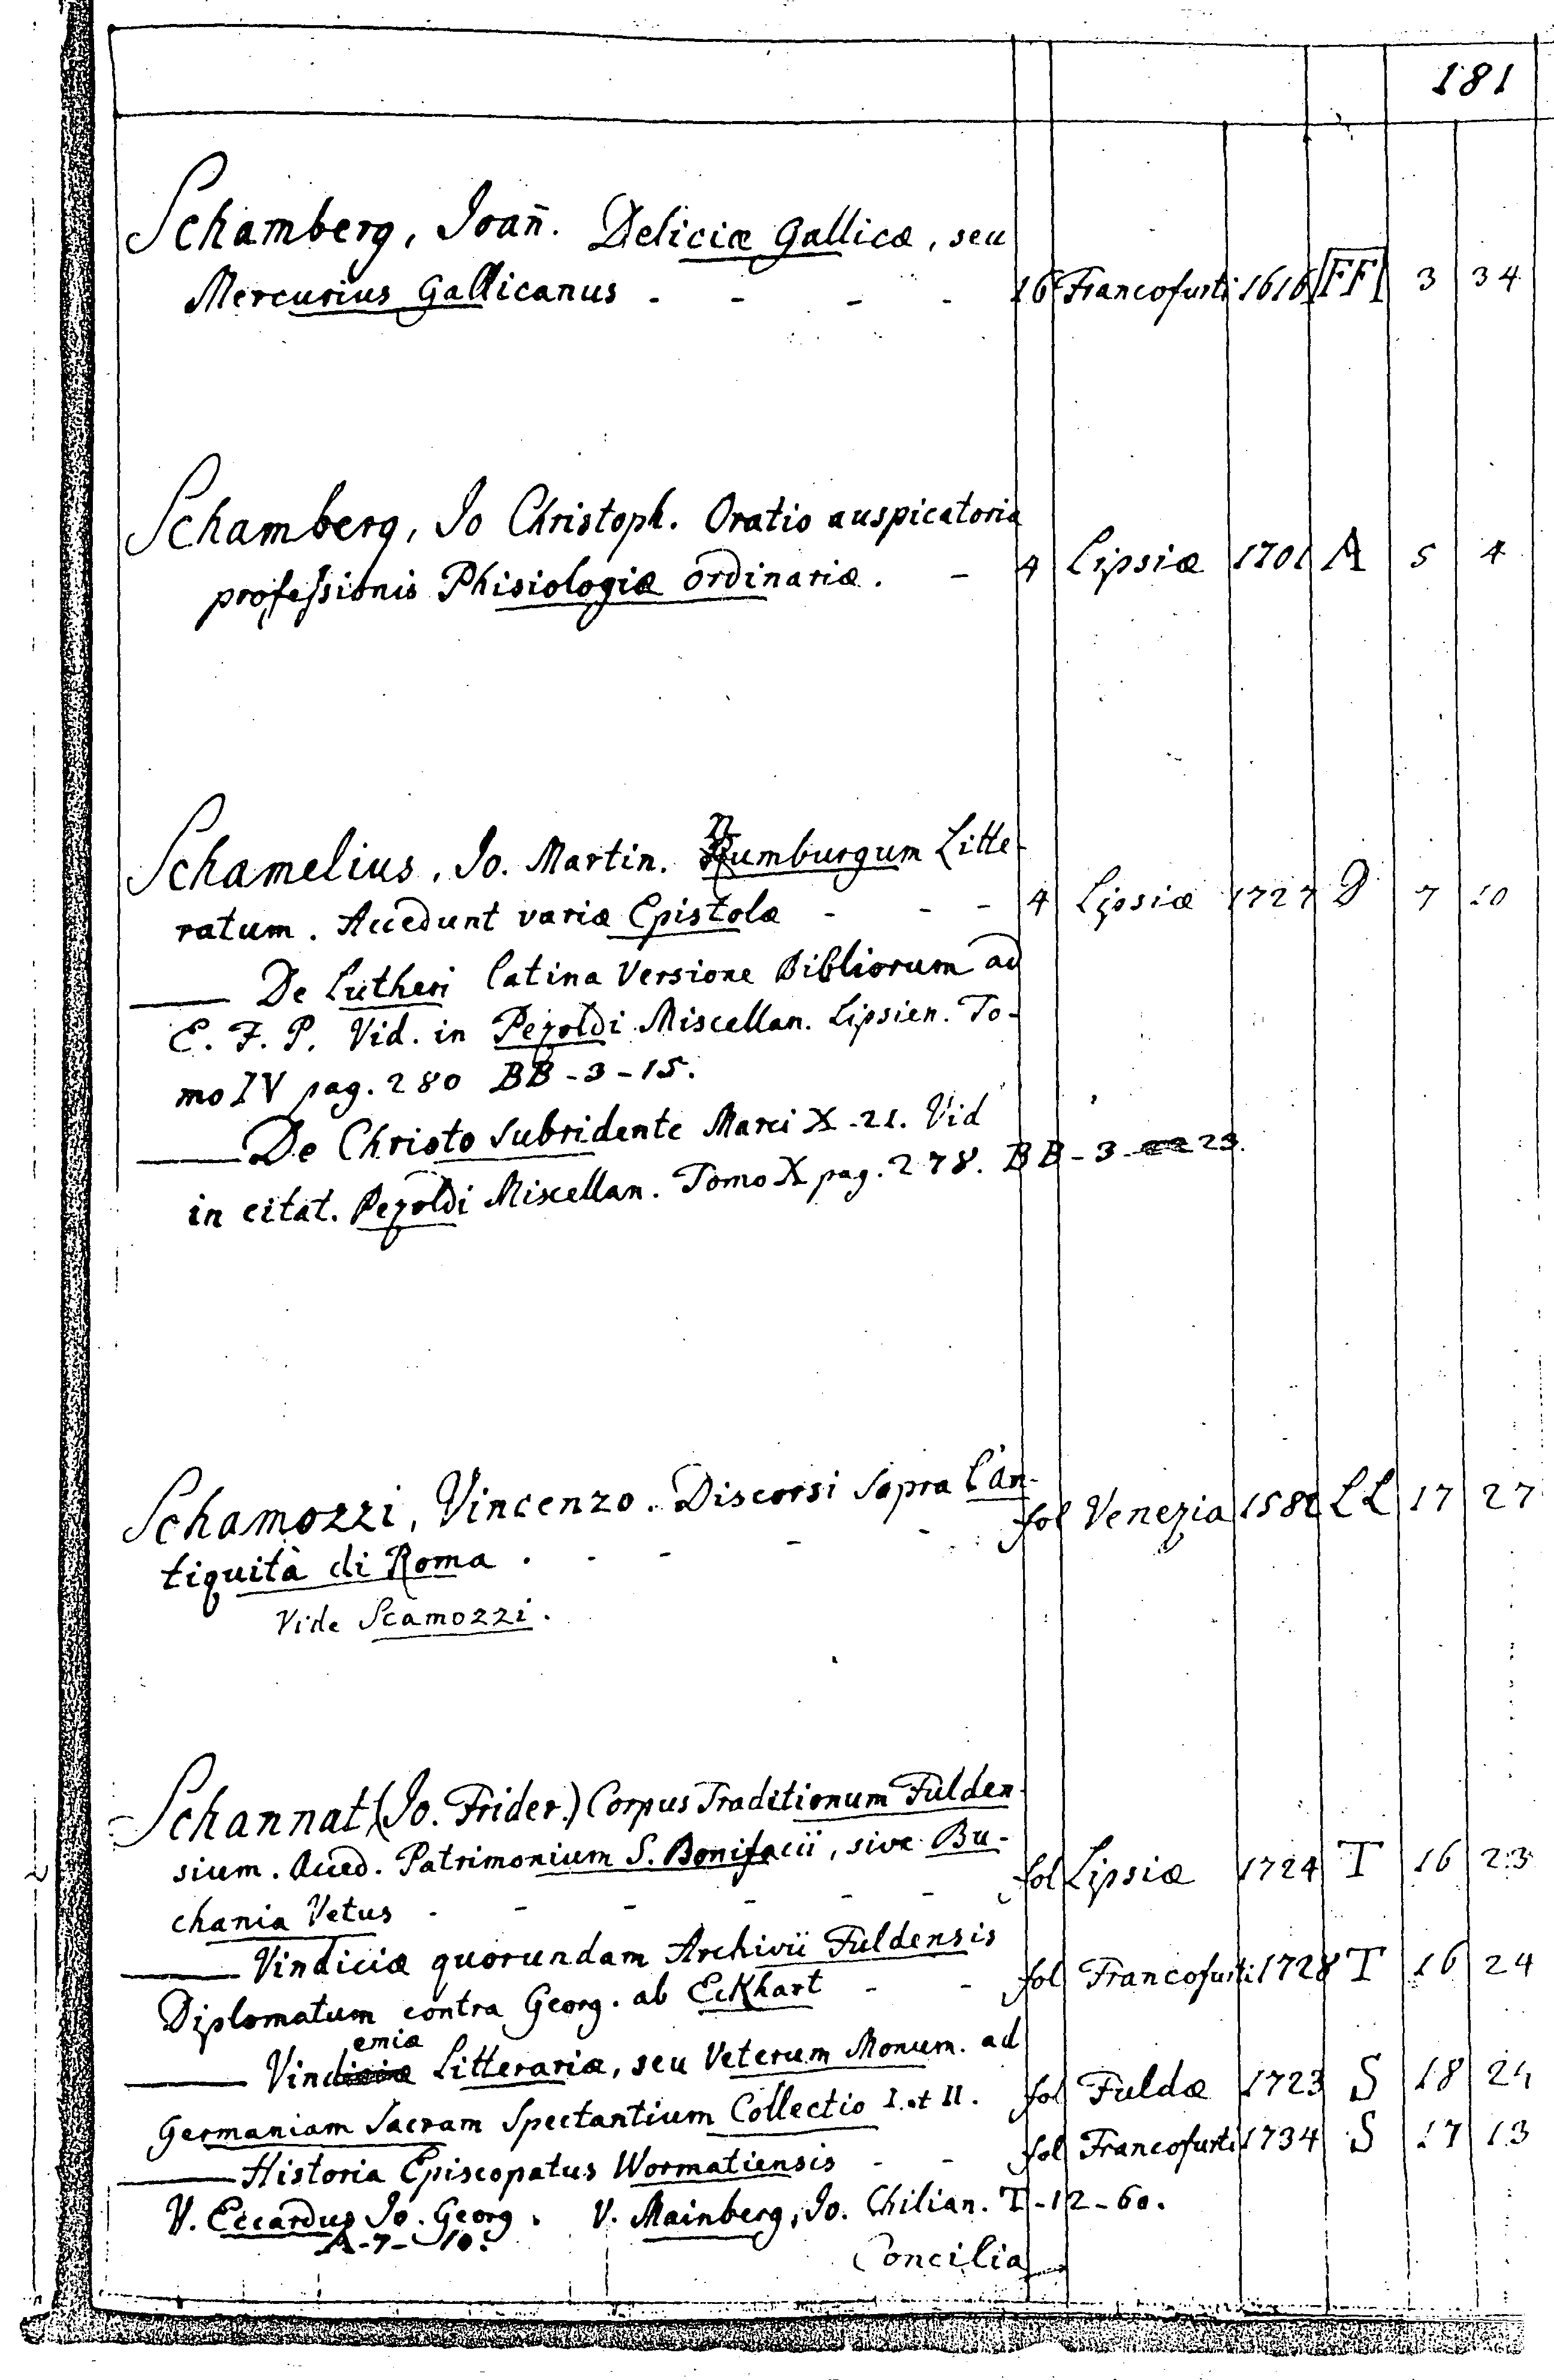 181
Schamberg, Joan̄. Deliciæ Gallicæ, seu
Mercurius Gallicanus - - - - 16 Francofurti 1616 FF 3 34
Schamberg, Jo Christoph. Oratio auspicatoria
professionis Phisiologiæ ordinariæ. - 4 Lipsiæ 1701 A 5 4
Schamelius, Jo. Martin. Numburgum Litte-
ratum. Accedunt variæ Epistolæ - - - 4 Lipsiæ 1727 D 7 10
—— De Lutheri latina Versione Bibliorum ad
E. F. P. Vid. in Pezoldi Miscellan. Lipsien. To-
mo IV pag. 280 BB-3-15.
—— De Christo subridente Marci X-21. Vid
in citat. Pezoldi Miscellan. Tomo X pag. 278. BB-3-23.
Schamozzi, Vincenzo. Discorsi sopra l'an-
tiquità di Roma . - - - - fol Venezia 1582 LL 17 27
Vide Scamozzi.
Schannat (Jo. Frider.) Corpus Traditionum Fulden-
sium. Acced. Patrimonium S. Bonifacii, sive Bu-
chania Vetus - - - - - - fol Lipsiæ 1724 T 16 23
—— Vindiciæ quorundam Archivii Fuldensis
Diplomatum contra Georg. ab Eckhart - - fol Francofurti 1728 T 16 24
—— Vindemiæ Litterariæ, seu Veterum Monum. ad
Germaniam Sacram Spectantium Collectio I. et II. fol Fuldæ 1723 S 18 24
—— Historia Episcopatus Wormatiensis - - fol Francofurti 1734 S 17 13
V. Eccardus Jo. Georg. V. Mainberg, Jo. Chilian. T-12-60.
A-7-10.
Concilia